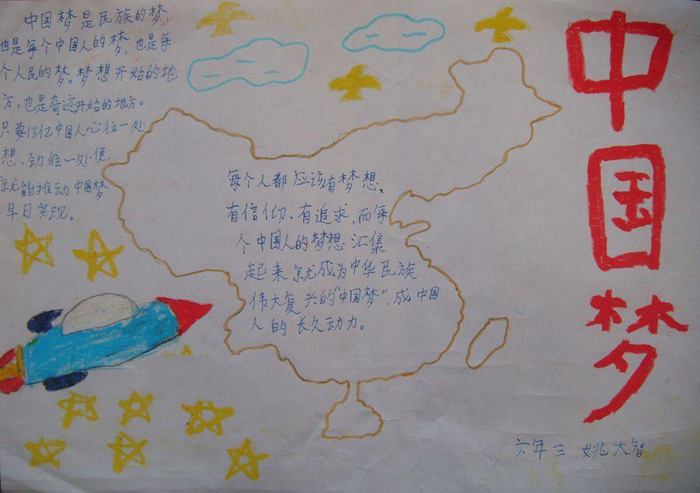 中国梦是民族的梦,
也是每个中国人的梦,也是每
个人民的梦。梦想开始的地
方,也是奇迹开始的地方。
只要13亿中国人心往一处
想,劲往一处使,
就能推动中国梦
早日实现。
每个人都应该有梦想、
有信仰、有追求,而每
个中国人的梦想汇集
起来就成为中华民族
伟大复兴的“中国梦”,成中国
人的长久动力。
中国梦
六年三 姚大智